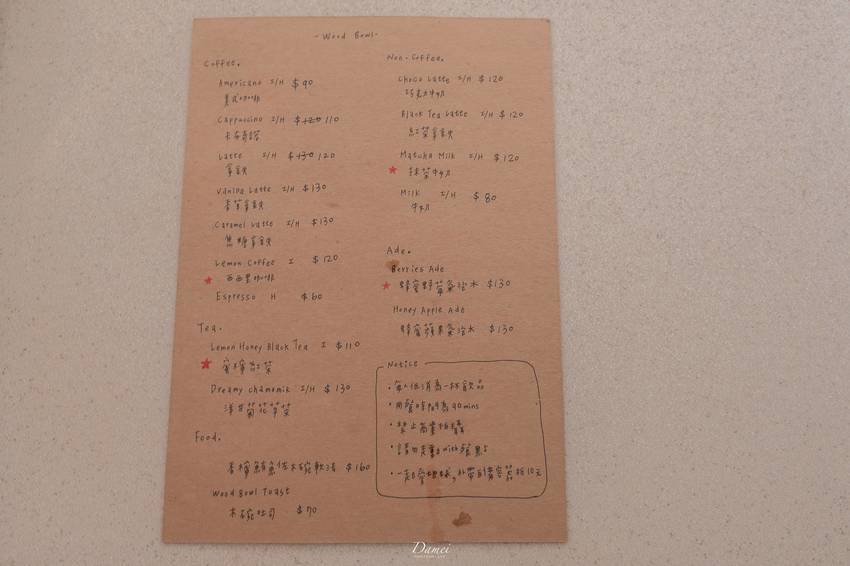 - Wood Bowl -
Coffee.
Americano I/H $90
美式咖啡
Cappuccino I/H $120 110
卡布奇諾
Latte I/H $130 120
拿鐵
Vanilla Latte I/H $130
香草拿鐵
Caramel Latte I/H $130
焦糖拿鐵
Lemon Coffee I $120
★ 西西里咖啡
Espresso H $60
Tea.
Lemon Honey Black Tea I $110
★ 蜜檸紅茶
Dreamy chamomile I/H $130
洋甘菊花草茶
Food.
香檸鮪魚佐木碗軟法 $160
Wood Bowl Toast
木碗吐司 $70
Non-Coffee.
Choco Latte I/H $120
巧克力牛奶
Black Tea Latte I/H $120
紅茶拿鐵
Matcha Milk I/H $120
★ 抹茶牛奶
Milk I/H $80
牛奶
Ade.
Berries Ade
★ 蜂蜜野莓氣泡水 $130
Honey Apple Ade
蜂蜜蘋果氣泡水 $130
Notice
• 每人低消為一杯飲品
• 用餐時間為90mins
• 禁止商業拍攝
• 請勿走動with餐點
• 一起愛地球,外帶自備容器折10元
Damei